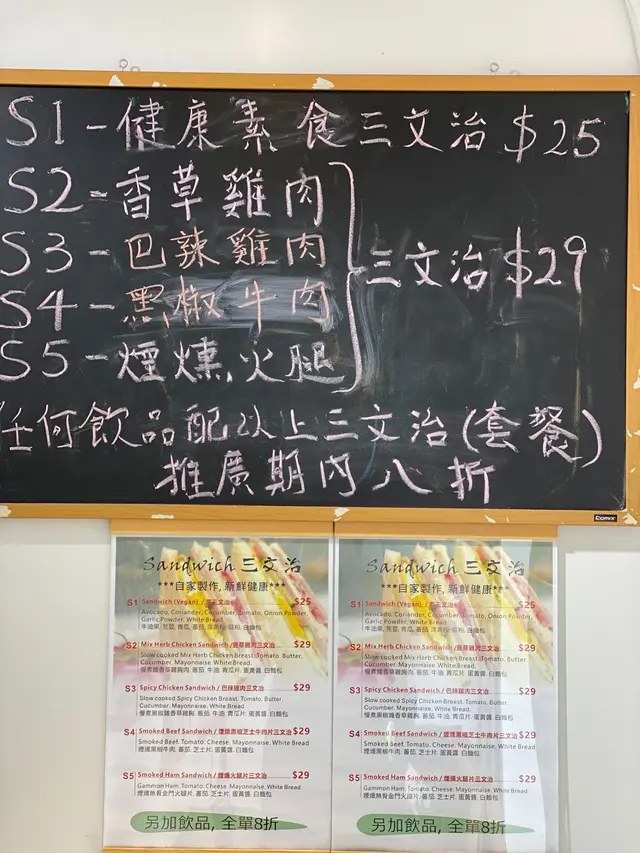 S1-健康素食三文治 $25
S2-香草雞肉
S3-巴辣雞肉
三文治 $29
S4-黑椒牛肉
S5-煙燻火腿
任何飲品配以上三文治(套餐)
推廣期內八折
COMIX
Sandwich 三文治
***自家製作, 新鮮健康***
S1 Sandwich (Vegan) / 素三文治 $25
Avocado, Coriander, Cucumber, Tomato, Onion Powder,
Garlic Powder, White Bread
牛油果, 芫荽, 青瓜, 蕃茄, 洋蔥粉, 蒜粉, 白麵包
S2 Mix Herb Chicken Sandwich / 香草雞肉三文治 $29
Slow cooked Mix Herb Chicken Breast, Tomato, Butter,
Cucumber, Mayonnaise, White Bread
慢煮黑椒雜香草雞胸肉, 蕃茄, 牛油, 青瓜片, 蛋黃醬, 白麵包
S3 Spicy Chicken Sandwich / 巴辣雞肉三文治 $29
Slow cooked Spicy Chicken Breast, Tomato, Butter,
Cucumber, Mayonnaise, White Bread
S4 Smoked Beef Sandwich / 煙燻黑椒芝士牛肉片三文治 $29
Smoked Beef, Tomato, Cheese, Mayonnaise, White Bread
煙燻黑椒牛肉, 蕃茄, 芝士片, 蛋黃醬, 白麵包
S5 Smoked Ham Sandwich / 煙燻火腿三文治 $29
Gammon Ham, Tomato, Cheese, Mayonnaise, White Bread
煙燻無骨金門火腿片, 蕃茄, 芝士片, 蛋黃醬, 白麵包
另加飲品, 全單8折
Sandwich 三文治
***自家製作, 新鮮健康***
S1 Sandwich (Vegan) / 素三文治 $25
Avocado, Coriander, Cucumber, Tomato, Onion Powder,
Garlic Powder, White Bread
牛油果, 芫荽, 青瓜, 蕃茄, 洋蔥粉, 蒜粉, 白麵包
S2 Mix Herb Chicken Sandwich / 香草雞肉三文治 $29
Slow cooked Mix Herb Chicken Breast, Tomato, Butter,
Cucumber, Mayonnaise, White Bread
S3 Spicy Chicken Sandwich / 巴辣雞肉三文治 $29
Slow cooked Spicy Chicken Breast, Tomato, Butter,
Cucumber, Mayonnaise, White Bread
S4 Smoked Beef Sandwich / 煙燻黑椒芝士牛肉片三文治 $29
Smoked Beef, Tomato, Cheese, Mayonnaise, White Bread
煙燻黑椒牛肉, 蕃茄, 芝士片, 蛋黃醬, 白麵包
S5 Smoked Ham Sandwich / 煙燻火腿三文治 $29
Gammon Ham, Tomato, Cheese, Mayonnaise, White Bread
煙燻無骨金門火腿片, 蕃茄, 芝士片, 蛋黃醬, 白麵包
另加飲品, 全單8折